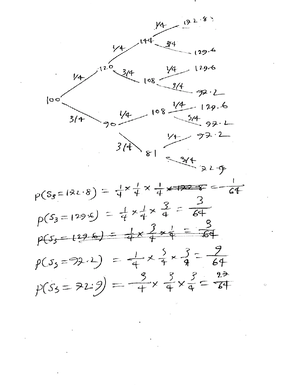 1/4 172.8
144
1/4 3/4 129.6
120
1/4 3/4 108 1/4 129.6
3/4 97.2
100
3/4 90 1/4 108 1/4 129.6
3/4 97.2
3/4 81 1/4 97.2
3/4 72.9
P(S₃=172.8) = 1/4 × 1/4 × 1/4 = 1/64
P(S₃=129.6) = 1/4 × 1/4 × 3/4 = 3/64
P(S₃=129.6) = 1/4 × 3/4 × 1/4 = 3/64
P(S₃=97.2) = 1/4 × 3/4 × 3/4 = 9/64
P(S₃=72.9) = 3/4 × 3/4 × 3/4 = 27/64